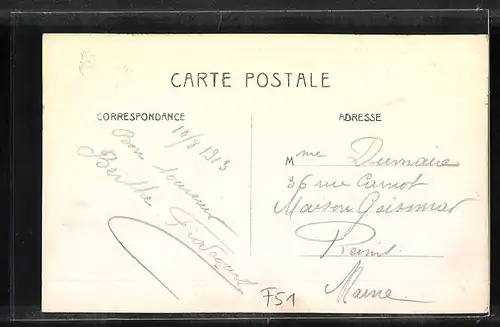 CARTE POSTALE
CORRESPONDANCE
ADRESSE
18/8 1913
Bon souvenir
Berthe
Mme Dumaire
36 rue Carnot
Maison Goismar
Reims
Marne
F51